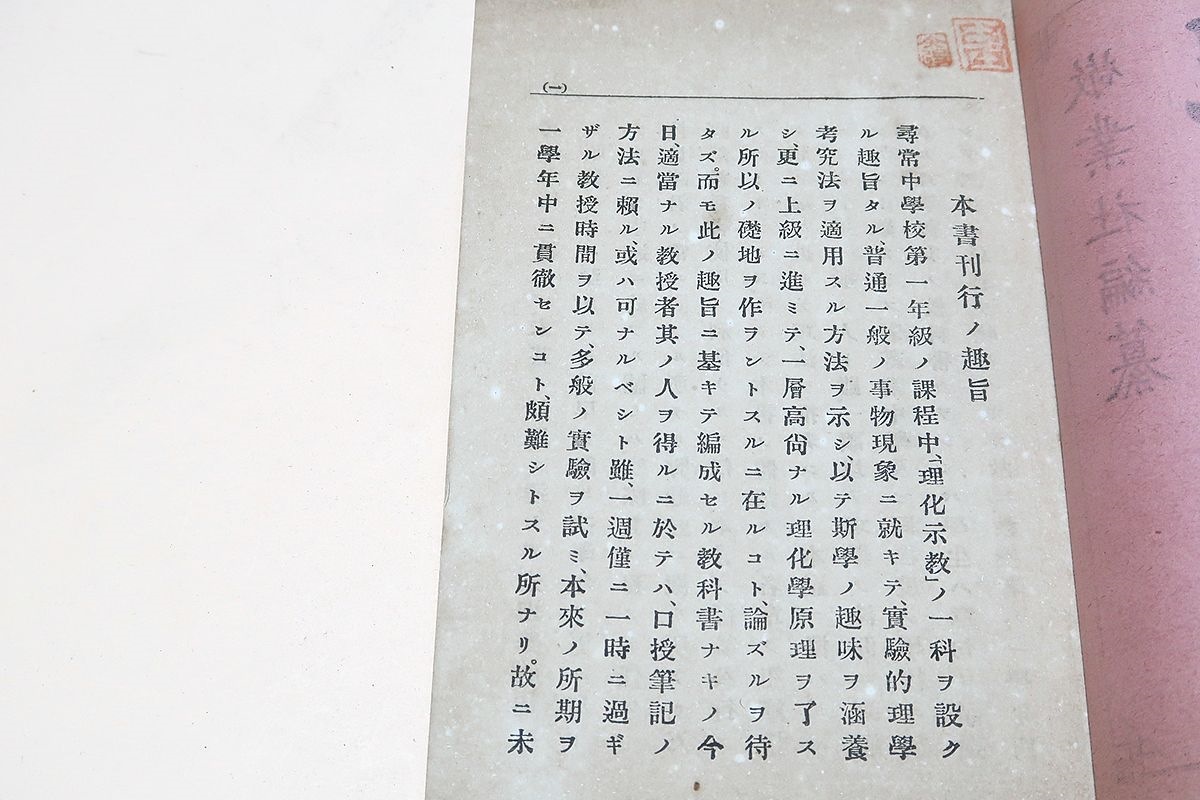 本書刊行ノ趣旨
尋常中學校第一年級ノ課程中、「理化示教」ノ一科ヲ設ク
ル趣旨タル、普通一般ノ事物現象ニ就キテ、實驗的理學
考究法ヲ適用スル方法ヲ示シ、以テ斯學ノ趣味ヲ涵養
シ、更ニ上級ニ進ミテ、一層高尙ナル理化學原理ヲ了ス
ル所以ノ礎地ヲ作ヲントスルニ在ルコト、論ズルヲ待
タズ。而モ此ノ趣旨ニ基キテ編成セル教科書ナキノ今
日、適當ナル教授者其ノ人ヲ得ルニ於テハ、口授筆記ノ
方法ニ賴ル、或ハ可ナルベシト雖、一週僅ニ一時ニ過ギ
ザル教授時間ヲ以テ、多般ノ實驗ヲ試ミ、本來ノ所期ヲ
一學年中ニ貫徹センコト、頗難シトスル所ナリ。故ニ未
(一)
敬業社編纂